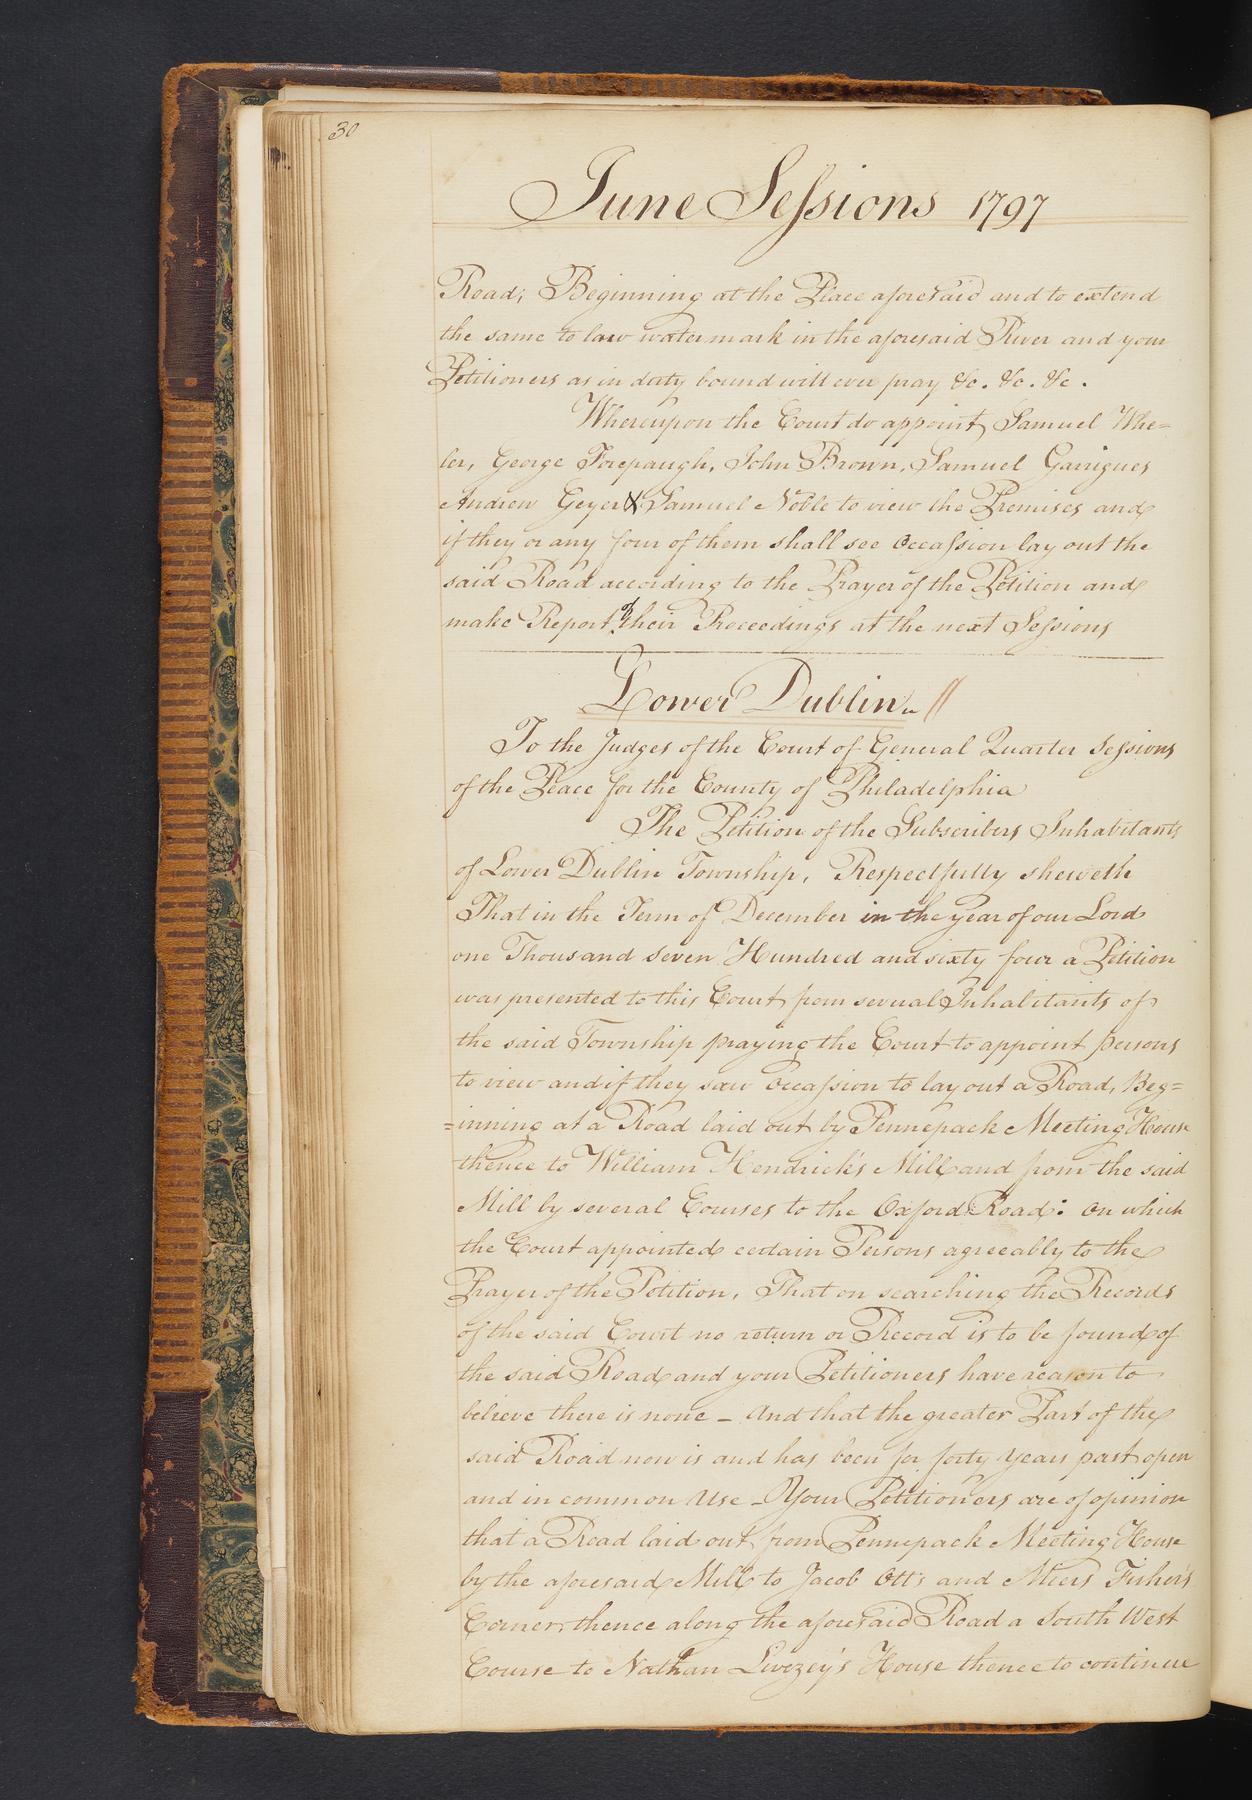 30
June Sessions 1797
Road; Beginning at the Place aforesaid and to extend
the same to low water mark in the aforesaid River and your
Petitioners as in duty bound will ever pray &c. &c. &c.
Whereupon the Court do appoint Samuel Whe=
ler, George Forepaugh, John Brown, Samuel Garrigues
Andrew Geyer & Samuel Noble to view the Premises and
if they or any four of them shall see Occassion lay out the
said Road according to the Prayer of the Petition and
make Report of their Proceedings at the next Sessions
Lower Dublin
To the Judges of the Court of General Quarter Sessions
of the Peace for the County of Philadelphia
The Petition of the Subscribers Inhabitants
of Lower Dublin Township, Respectfully sheweth
That in the Term of December in the year of our Lord
one Thousand seven Hundred and sixty four a Petition
was presented to this Court from several Inhabitants of
the said Township praying the Court to appoint persons
to view and if they saw occassion to lay out a Road, Beg=
=inning at a Road laid out by Pennepack Meeting House
thence to William Hendrick's Mill and from the said
Mill by several Courses to the Oxford Road: on which
the Court appointed certain Persons agreeably to the
Prayer of the Petition, That on searching the Records
of the said Court no return or Record is to be found of
the said Road and your Petitioners have reason to
believe there is none - And that the greater Part of the
said Road now is and has been for forty years past open
and in common Use - Your Petitioners are of opinion
that a Road laid out from Pennepack Meeting House
by the aforesaid Mill to Jacob Ott's and Miers Fisher's
Corner, thence along the aforesaid Road a South West
Course to Nathan Livezey's House thence to continue